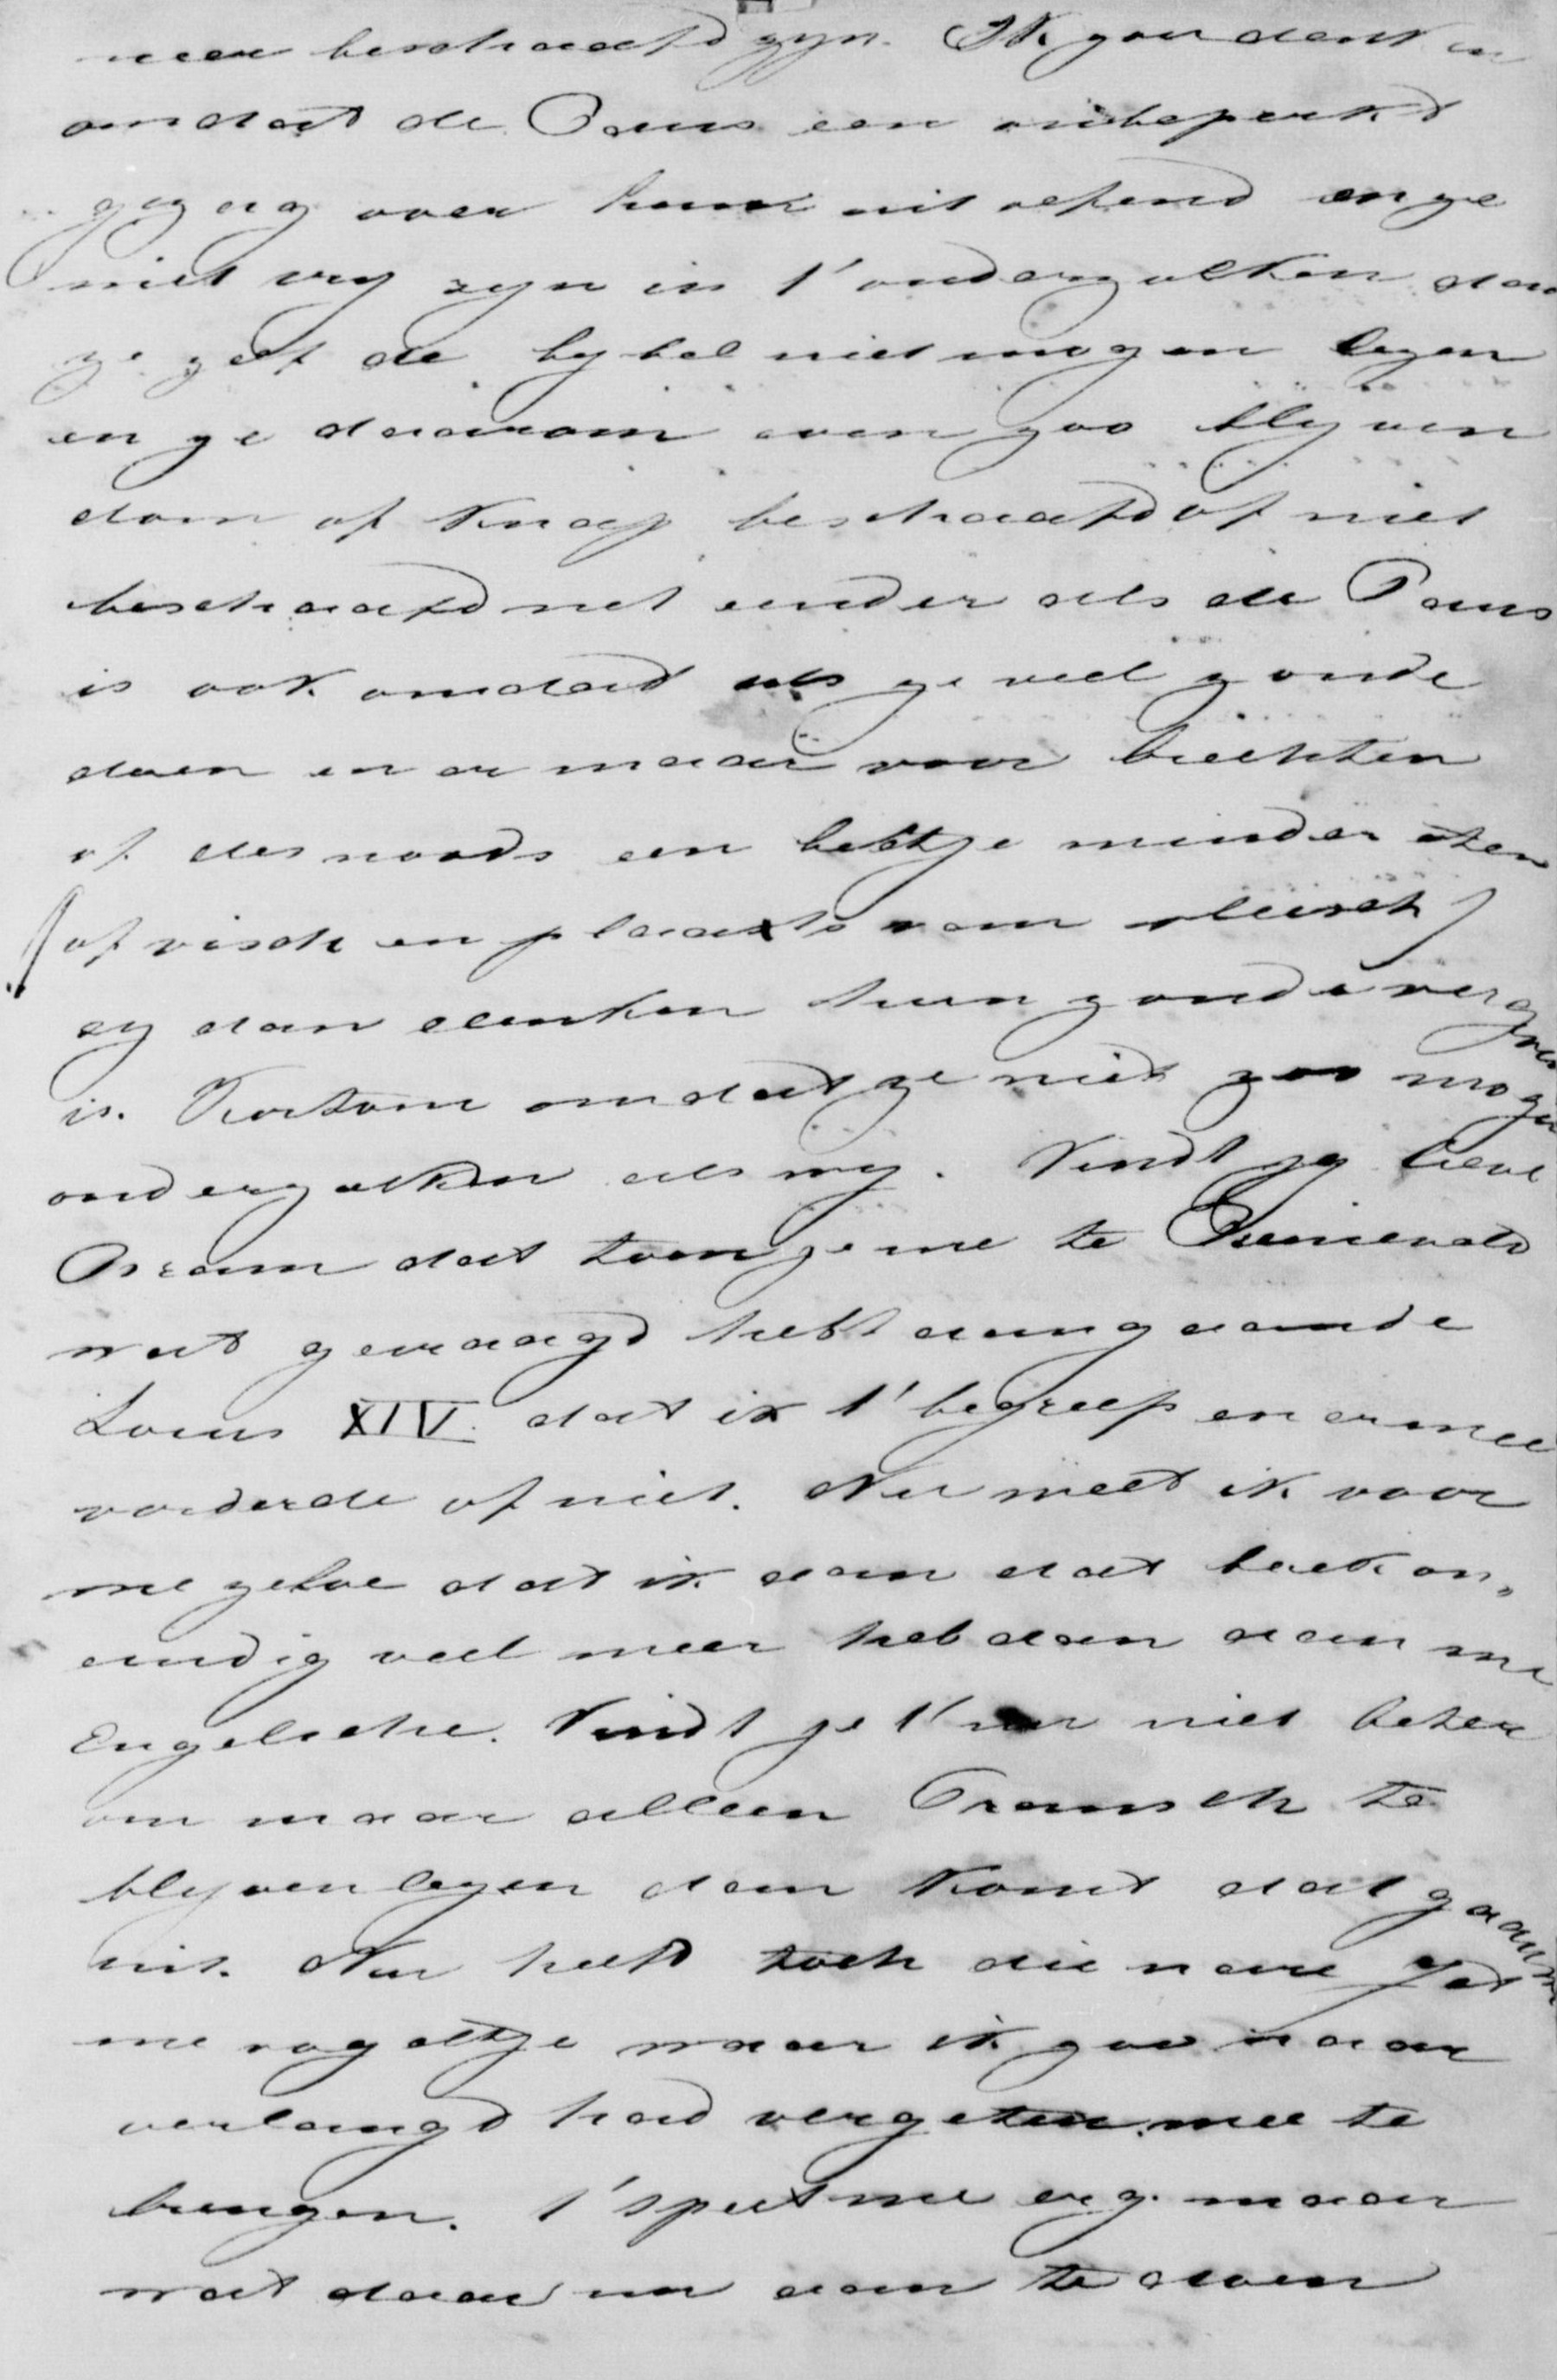 meer beschaafd zyn. Ik zou denken
omdat de Paus een onbeperkt
gezag over hun uit oefend en ze
niet vry zyn in t' onderzoeken dan
ze zelf de bybel niet mogen lezen
en ze daarom even zoo blyven
dom of knap beschaafd of niet
beschaafd net eender als de Paus
is ook omdat als ze veel zonde
doen en er maar voor biechten
of des noods een beetje minder eten
(of visch en plaats van vleesch)
zy dan denken hun zonde vergeven
is. Kortom omdat ze niet zoo mogen
onderzoeken als wy. Vindt jy lieve
Bram dat toen je me te
wat gevraagd hebt aangaande
Louis XIV. dat ik t' begreep en er mee
vorderde of niet. Nu weet ik voor
me zelve dat ik aan dat boek on„
eindig veel meer heb dan aan me
Engelsche. Vindt je t' nu niet beter
om maar alleen Fransch te
blyven lezen dan komt dat gaauw
uit. Nu heeft toch die nare Jet
me vogeltje waar ik zoo naar
verlangd had vergeten mee te
brengen. t' Speet me erg maar
wat daar nu aan te doen